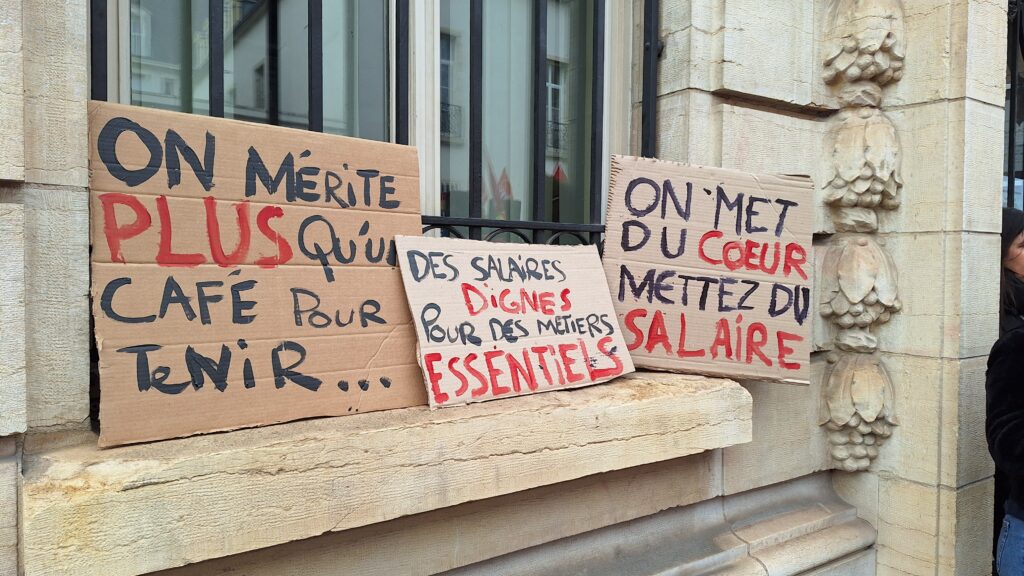 ON MÉRITE
PLUS QU'UN
CAFÉ POUR
TENIR...
DES SALAIRES
DIGNES
POUR DES MÉTIERS
ESSENTIELS
ON MET
DU COEUR
METTEZ DU
SALAIRE